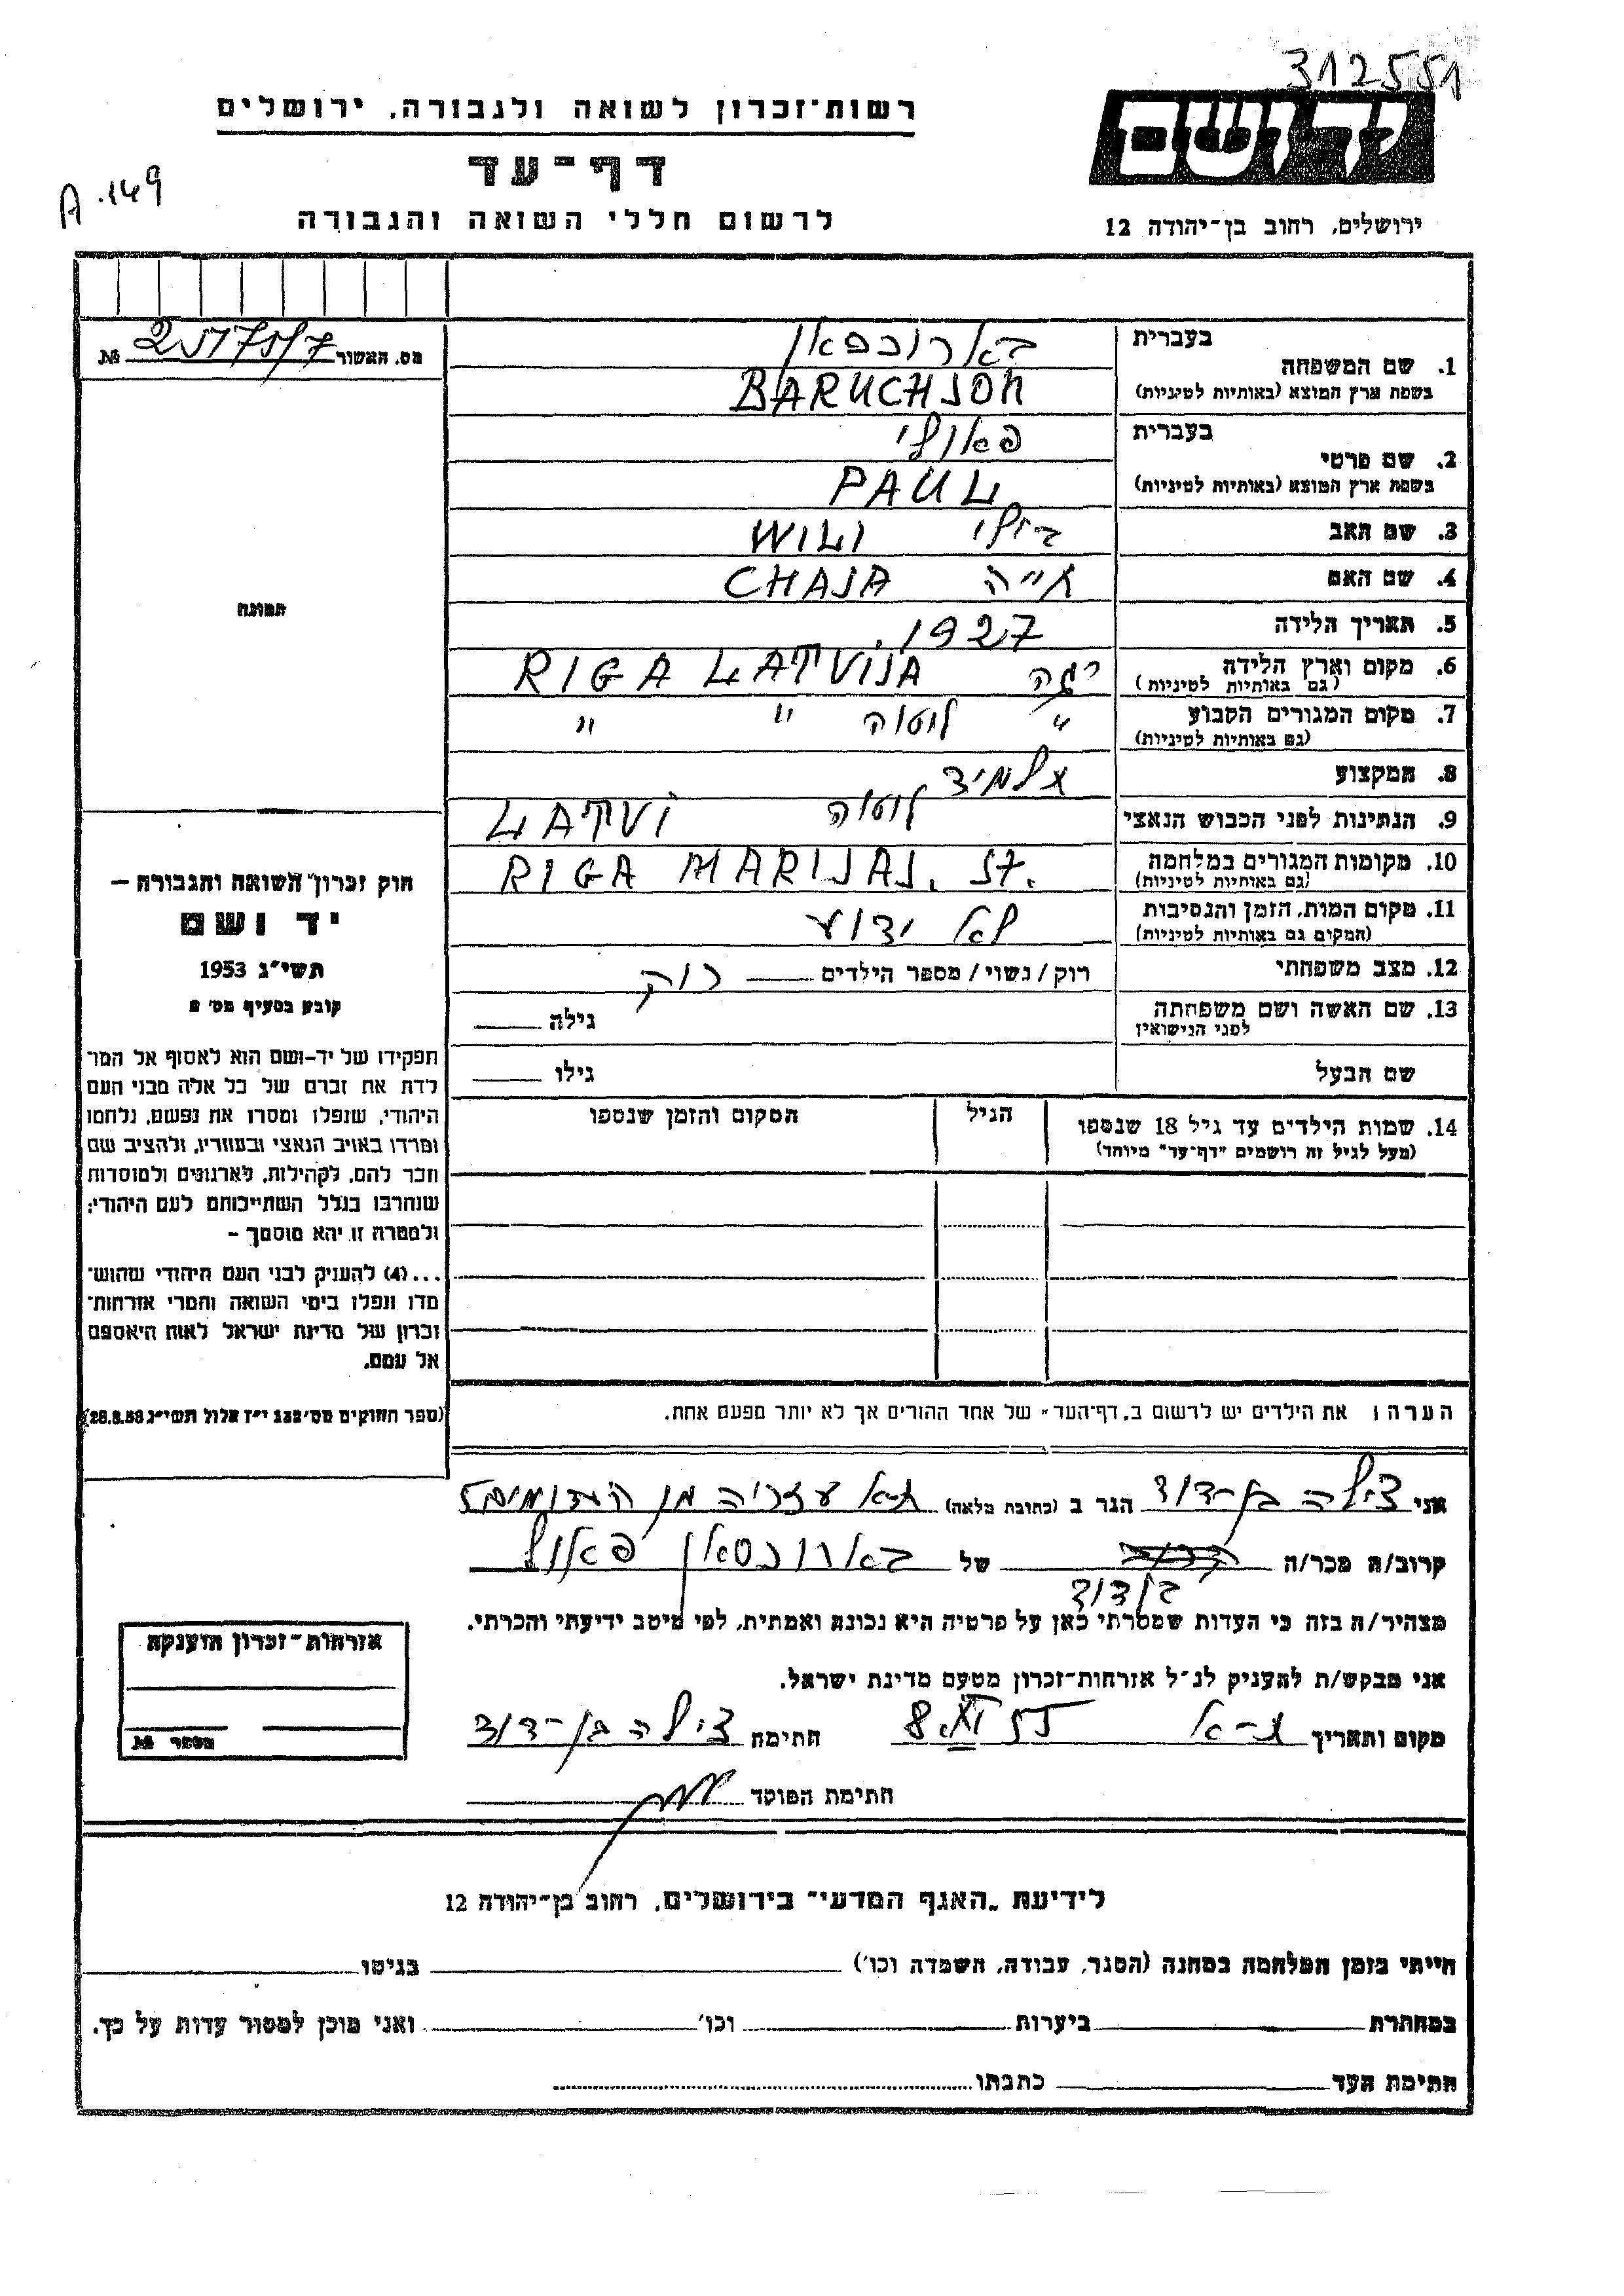 312551
רשות־זכרון לשואה ולגבורה, ירושלים
יד ושם
דף־עד
A.149
לרשום חללי השואה והגבורה
ירושלים, רחוב בן־יהודה 12
מס. האשור №
1. שם המשפחה
בעברית
בשפת ארץ המוצא (באותיות לטיניות)
BARUCHSON
2. שם פרטי
בעברית
בשפת ארץ המוצא (באותיות לטיניות)
PAUL
3. שם האב
וילי WILI
4. שם האם
חייה CHAJA
5. תאריך הלידה
1927
6. מקום וארץ הלידה
(גם באותיות לטיניות)
ריגה RIGA LATVIJA
7. מקום המגורים הקבוע
(גם באותיות לטיניות)
" לוטוה " "
8. המקצוע
תלמיד
9. הנתינות לפני הכבוש הנאצי
לוטוה LATVI
10. מקומות המגורים במלחמה
(גם באותיות לטיניות)
RIGA MARIJAS. 57.
11. מקום המות, הזמן והנסיבות
(המקום גם באותיות לטיניות)
לא ידוע
12. מצב משפחתי
רוק/נשוי/מספר הילדים רוק
13. שם האשה ושם משפחתה
לפני הנישואין
גילה
שם הבעל
גילו
14. שמות הילדים עד גיל 18 שנספו
(מעל לגיל זה רושמים "דף־עד" מיוחד)
הגיל
המקום והזמן שנספו
הערה: את הילדים יש לרשום ב„דף־העד" של אחד ההורים אך לא יותר מפעם אחת.
תמונה
חוק זכרון השואה והגבורה –
יד ושם
תשי"ג 1953
קובע בסעיף מס׳ 2
תפקידו של יד-ושם הוא לאסוף אל המו־
לדת את זכרם של כל אלה מבני העם
היהודי, שנפלו ומסרו את נפשם, נלחמו
ומרדו באויב הנאצי ובעוזריו, ולהציב שם
וזכר להם, לקהילות, לארגונים ולמוסדות
שנחרבו בגלל השתייכותם לעם היהודי;
ולמטרה זו יהא מוסמך –
...(4) להעניק לבני העם היהודי שהוש־
מדו ונפלו בימי השואה והמרי אזרחות־
זכרון של מדינת ישראל לאות היאספם
אל עמם.
(ספר החוקים מס׳ 132 י"ז אלול תשי"ג 28.8.53)
אני צילה בן-דוד הגר ב (כתובת מלאה) ת-א עזריה מן האדומים 5
קרוב/ה מכר/ה של בארוכסאן פאול
בן דוד
מצהיר/ה בזה כי העדות שמסרתי כאן על פרטיה היא נכונה ואמתית, לפי מיטב ידיעתי והכרתי.
אני מבקש/ת להעניק לנ"ל אזרחות־זכרון מטעם מדינת ישראל.
מקום ותאריך ת-א 8.XI.55 חתימה צילה בן-דוד
חתימת הפוקד
אזרחות־זכרון הוענקה
מספר №
לידיעת „האגף המדעי" בירושלים, רחוב בן־יהודה 12
הייתי בזמן המלחמה במחנה (הסגר, עבודה, השמדה וכו׳) בגיטו
במחתרת ביערות וכו׳ ואני מוכן למסור עדות על כך.
חתימת העד כתבתו